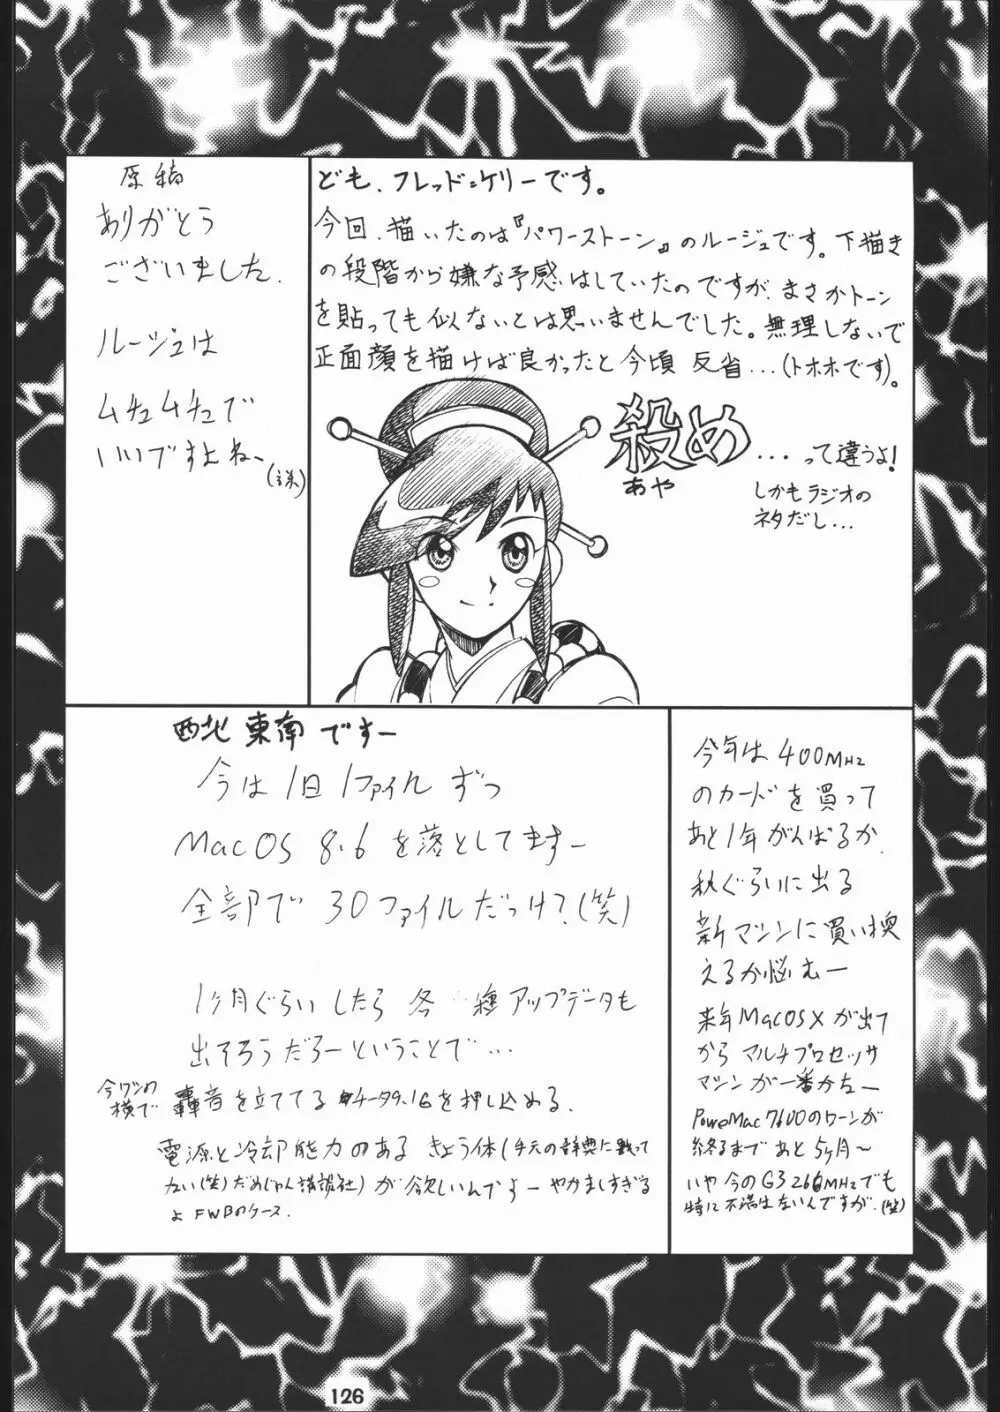 原稿
ありがとう
ございました.
ルージュは
ムチュムチュで
いいですよねー
ども、フレッド=ケリーです。
今回、描いたのは『パワーストーン』のルージュです。下描き
の段階から嫌な予感はしていたのですが、まさかトーン
を貼っても似ないとは思いませんでした。無理しないで
正面顔を描けば良かったと今頃反省...(トホホです)。
殺め
あや
...って違うよ!
しかもラジオの
ネタだし...
西北東南ですー
今は1日1ファイルずつ
MacOS 8.6を落としてますー
全部で30ファイルだっけ?(笑)
1ヶ月ぐらいしたら各種アップデータも
出そろうだろーということで...
今ワシの
横で
轟音を立ててるチータ9.1Gを押し込める.
電源と冷却能力のあるきょう体(手元の辞典に載って
ない(笑)だめじゃん講談社)が欲しいんですよーやかましすぎる
よFWBのケース.
今年は400MHz
のカードを買って
あと1年がんばるか.
秋ぐらいに出る
新マシンに買い換
えるか悩むー
来年MacOSXが出て
からマルチプロセッサ
マシンが一番かなー
PowerMac7600のローンが
終るまであと5ヶ月〜
いや今のG3 266MHzでも
特に不満はないんですが.(笑)
126